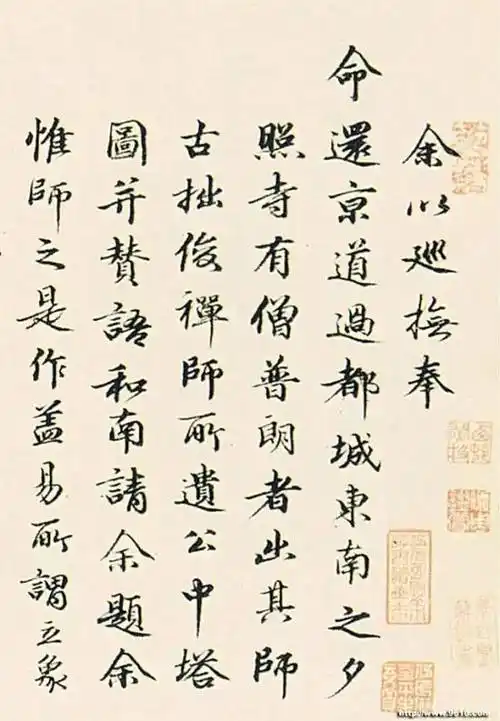 余以巡撫奉
命還京道過都城東南之夕
照寺有僧普朗者出其師
古拙俊禪師所遺公中塔
圖并贊語和南請余題余
惟師之是作蓋易所謂立象